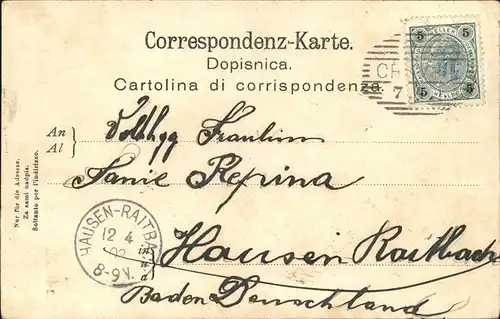 Correspondenz-Karte.
Dopisnica.
Cartolina di corrispondenza.
5 5
5 5
7
An
Al
Fräulein
Repina
in
Hausen Raitbach
Baden Deutschland
HAUSEN-RAITBA
12 4
02
8-9V.
Nur für die Adresse.
Za sami nadpis.
Soltanto per l'indirizzo.